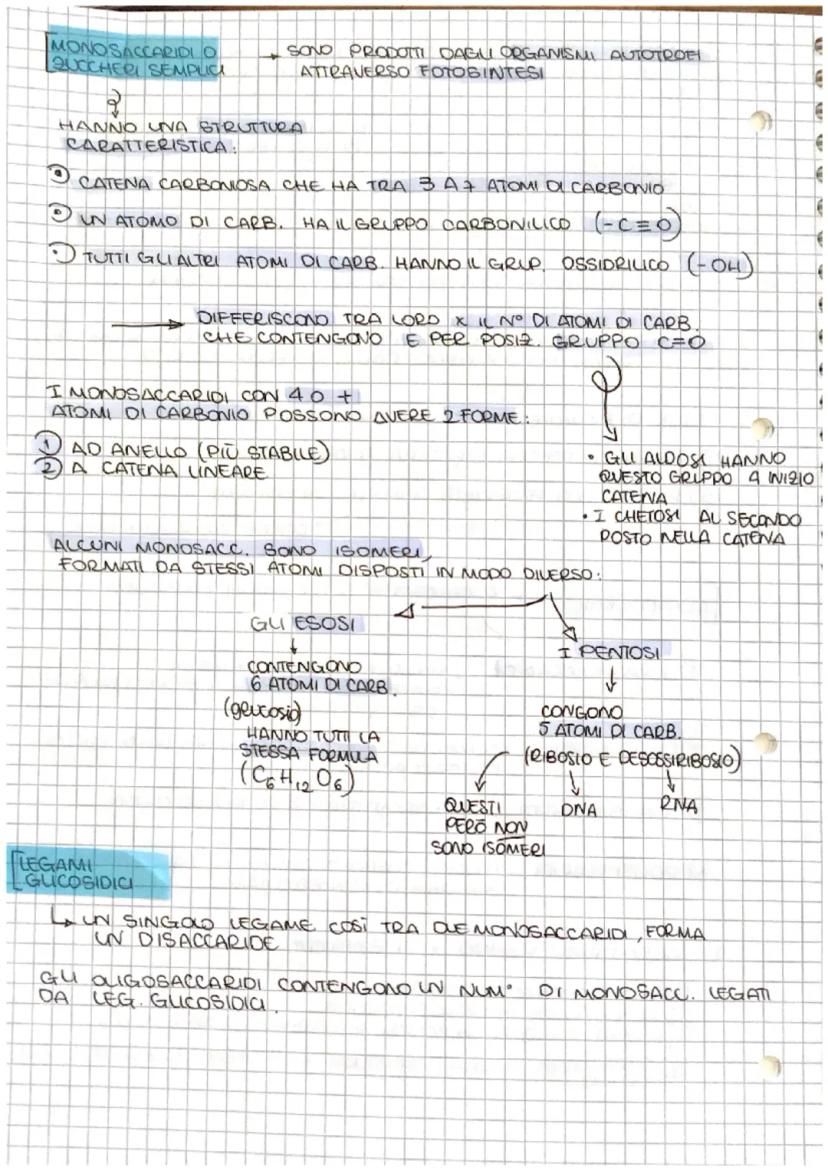 MONOSACCARIDI O
ZUCCHERI SEMPLICI
→ SONO PRODOTTI DAGLI ORGANISMI AUTOTROFI
ATTRAVERSO FOTOSINTESI
HANNO UNA STRUTTURA
CARATTERISTICA:
CATENA CARBONIOSA CHE HA TRA 3 A 7 ATOMI DI CARBONIO
UN ATOMO DI CARB. HA IL GRUPPO CARBONILICO (-C≡O)
TUTTI GLI ALTRI ATOMI DI CARB. HANNO IL GRUP. OSSIDRILICO (-OH)
→ DIFFERISCONO TRA LORO x IL N° DI ATOMI DI CARB.
CHE CONTENGONO E PER POSIZ. GRUPPO C=O
I MONOSACCARIDI CON 4 O +
ATOMI DI CARBONIO POSSONO AVERE 2 FORME:
1 AD ANELLO (PIÙ STABILE)
2 A CATENA LINEARE
• GLI ALDOSI HANNO
QUESTO GRUPPO A INIZIO
CATENA
• I CHETOSI AL SECONDO
POSTO NELLA CATENA
ALCUNI MONOSACC. SONO ISOMERI,
FORMATI DA STESSI ATOMI DISPOSTI IN MODO DIVERSO:
GLI ESOSI
↓
CONTENGONO
6 ATOMI DI CARB.
(glucosio)
HANNO TUTTI LA
STESSA FORMULA
(C₆H₁₂O₆)
I PENTOSI
↓
CONGONO
5 ATOMI DI CARB.
(RIBOSIO E DESOSSIRIBOSIO)
QUESTI
PERÒ NON
SONO ISOMERI
DNA
RNA
LEGAMI
GLICOSIDICI
↳ UN SINGOLO LEGAME COSÌ TRA DUE MONOSACCARIDI, FORMA
UN DISACCARIDE
GLI OLIGOSACCARIDI CONTENGONO UN NUM° DI MONOSACC. LEGATI
DA LEG. GLICOSIDICI.